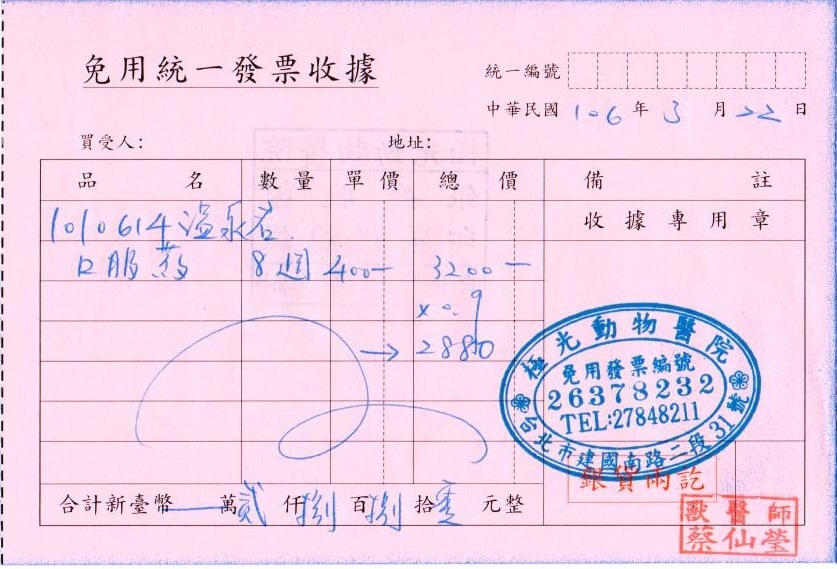 免用統一發票收據
統一編號
中華民國 106 年 3 月 22 日
買受人: 地址:
品名 數量 單價 總價 備註
1010614溫泉君 收據專用章
口服藥 8週 400- 3200-
x0.9
→ 2880
極光動物醫院
免用發票編號
26378232
TEL:27848211
台北市建國南路二段31號
銀貨兩訖
合計新臺幣 萬貳仟捌百捌拾零元整
獸醫師
蔡仙瑩